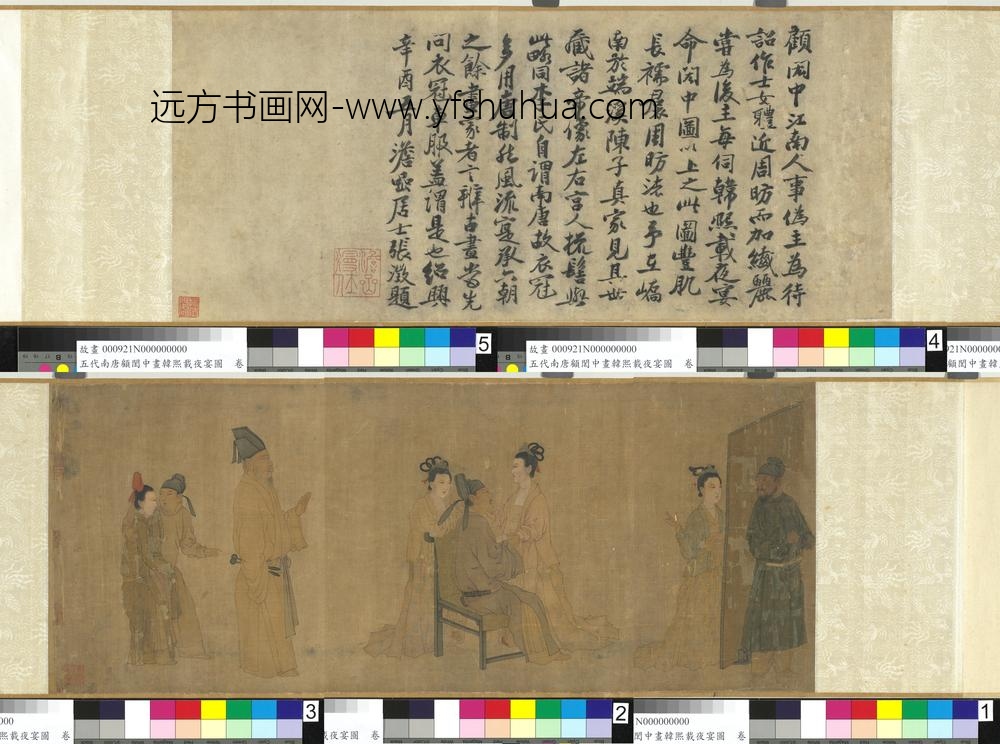 顧閎中江南人事偽主為待
詔作士女體近周昉而加纖麗
嘗為後主每伺韓熙載夜宴
命閎中圖以上之此圖豐肌
長襦最周昉法也予在嶠
南於端溪陳子真家見其世
藏諸帝像左右宮人梳髻與
此略同氏自謂南唐故衣冠
多用制然風流寔承六朝
之餘畫家者言辨古畫當先
問衣冠車服蓋謂是也紹興
辛酉月澹喦居士張澂題
远方书画网-www.yfshuhua.com
故畫 000921N000000000
五代南唐顧閎中畫韓熙載夜宴圖 卷
5
故畫 000921N000000000
五代南唐顧閎中畫韓熙載夜宴圖 卷
4
21N0000000
顧閎中畫韓熙
000
載夜宴圖 卷
3
載夜宴圖 卷
2
N000000000
閎中畫韓熙載夜宴圖 卷
1